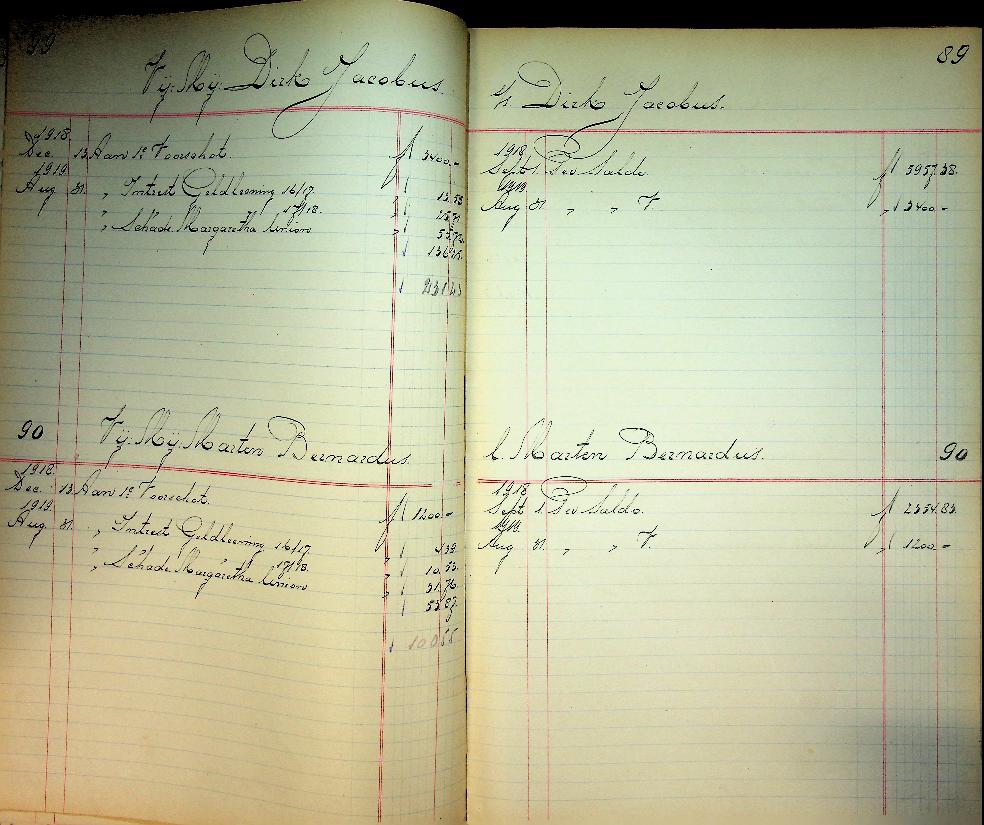 89
Vij: Mij: Dirk Jacobus.
1918
Dec. 13 Aan 1e Voorschot. f 3400.-
1919
Aug 31. " Intrest Geldleening 16/17.
" 17/18.
" Schade Margaretha Union
Dirk Jacobus.
89
1918
Sept 1. Per Saldo. f 5957.38.
1919
Aug 31. " " " 3400-
90
Vij: Mij: Marten Bernardus.
1918
Dec. 13 Aan 1e Voorschot. f 1200.-
1919.
Aug. 31. " Intrest Geldleening 16/17. 4 39.
" 17/18. 10.53.
" Schade Margaretha Union 31.76
53.87.
100 55
Marten Bernardus.
90
1918
Sept 1. Per Saldo. f 2354.83.
1919
Aug 31. " " " 1200-